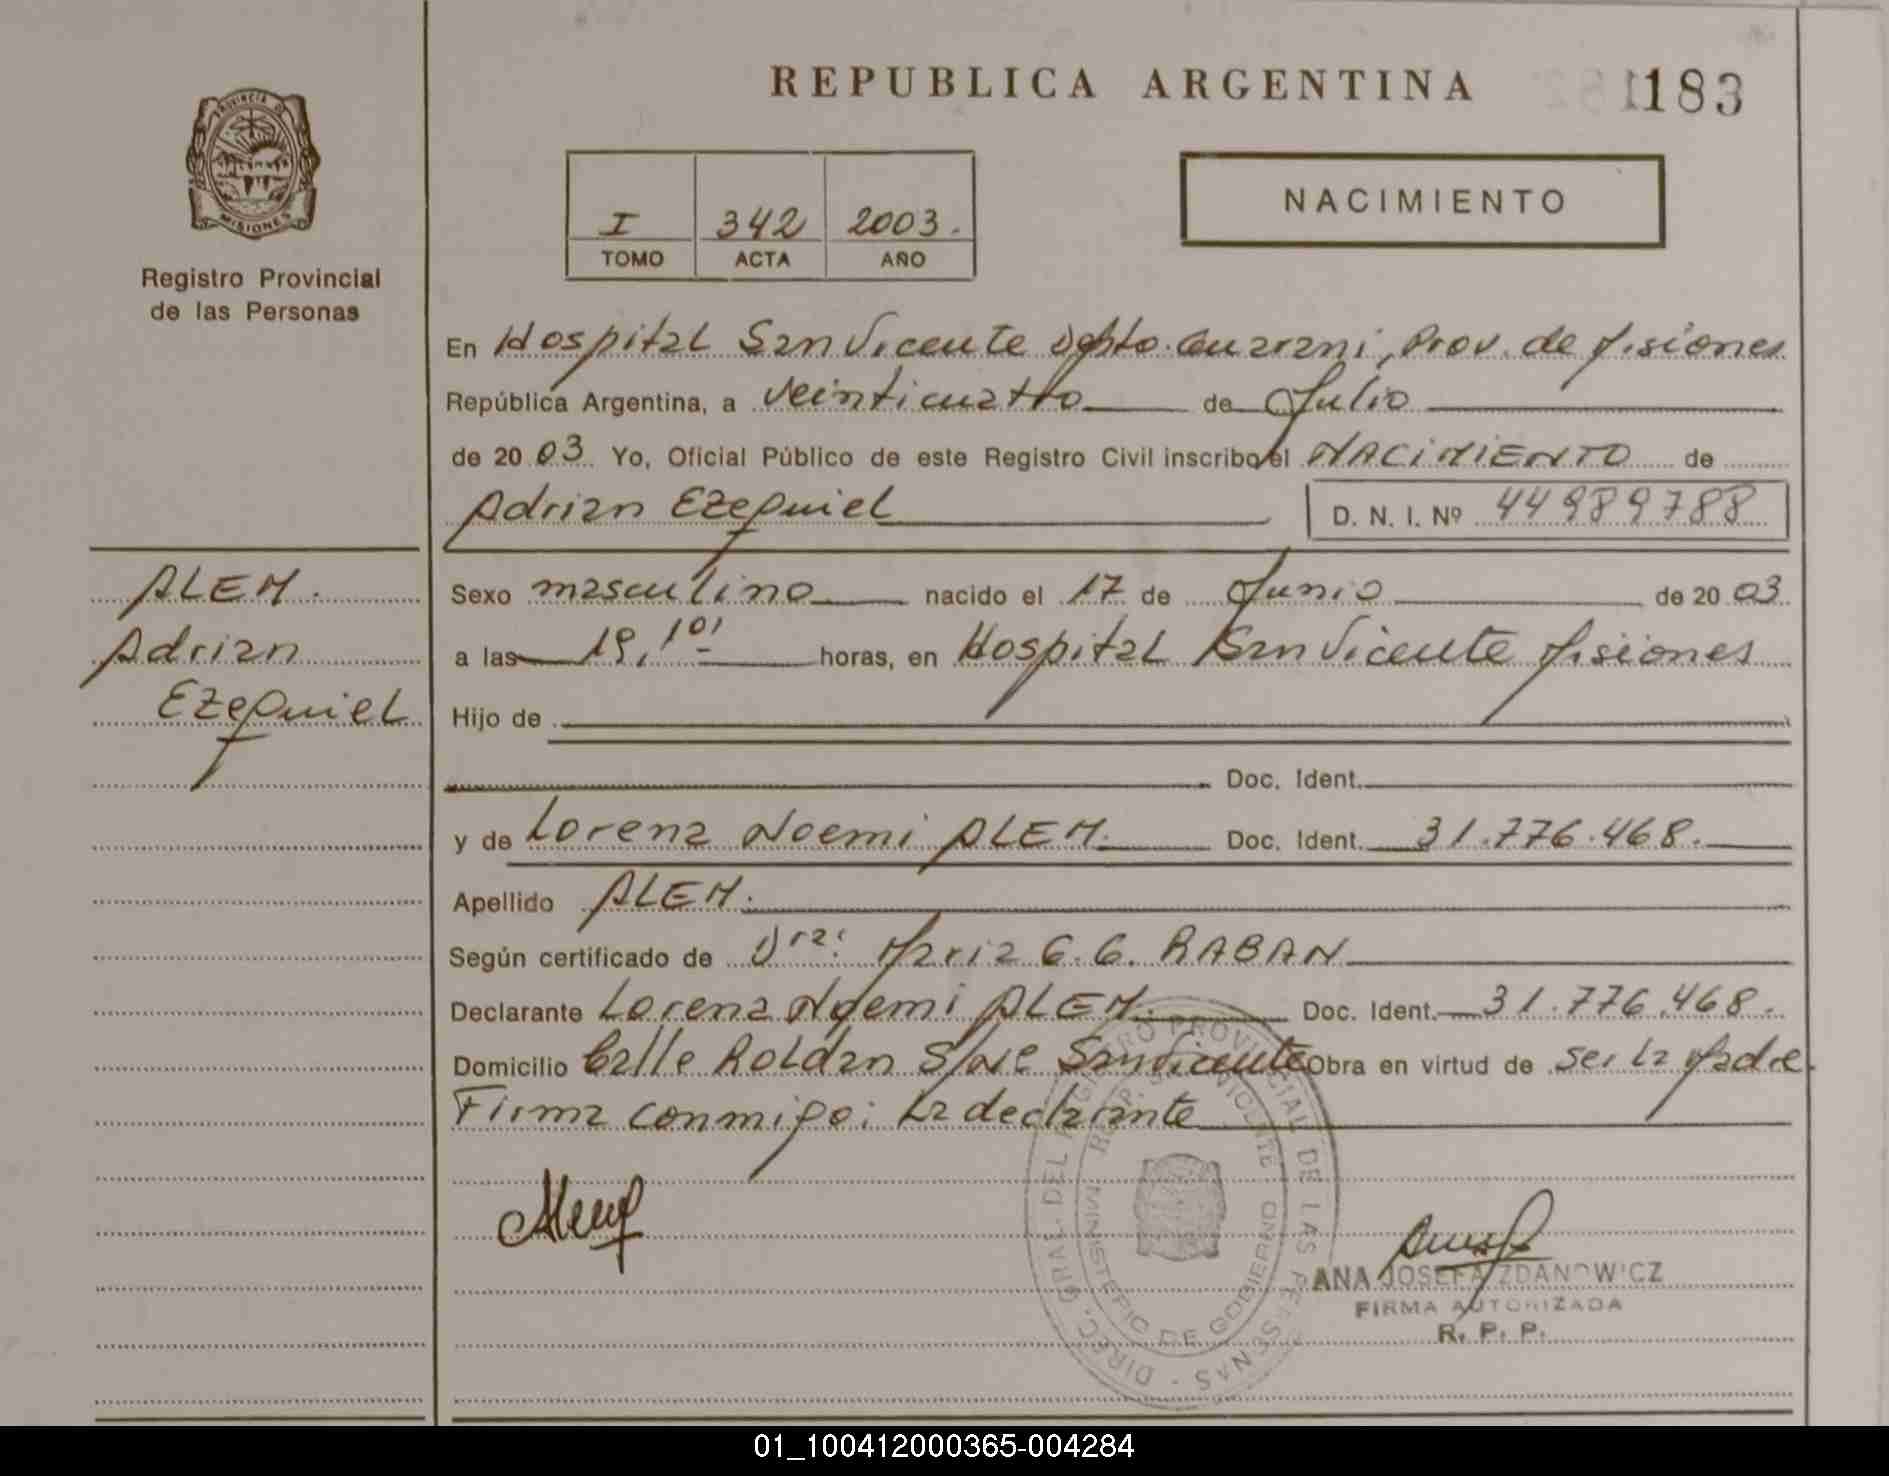 REPUBLICA ARGENTINA
183
PROVINCIA DE
MISIONES
Registro Provincial
de las Personas
I 342 2003.
TOMO ACTA AÑO
NACIMIENTO
En Hospital San Vicente Dpto. Guarani, Prov. de Misiones
República Argentina, a veinticuatro de Julio
de 2003 Yo, Oficial Público de este Registro Civil inscribo el NACIMIENTO de
Adrian Ezequiel D. N. I. Nº 44989788
ALEM.
Adrian
Ezequiel
Sexo masculino nacido el 17 de Junio de 2003
a las 19,10' horas, en Hospital San Vicente Misiones
Hijo de
Doc. Ident.
y de Lorena Noemi ALEM. Doc. Ident. 31.776.468.
Apellido ALEM.
Según certificado de Dra: Maria G. G. RABAN
Declarante Lorena Noemi ALEM. Doc. Ident. 31.776.468.
Domicilio Calle Roldan S/Nº San Vicente Obra en virtud de ser la Madre.
Firma conmigo: La declarante
DIREC. GRAL. DEL REGISTRO PROVINCIAL DE LAS PERSONAS
MINISTERIO DE GOBIERNO
ANA JOSEFA ZDANOWICZ
FIRMA AUTORIZADA
R. P. P.
01_100412000365-004284